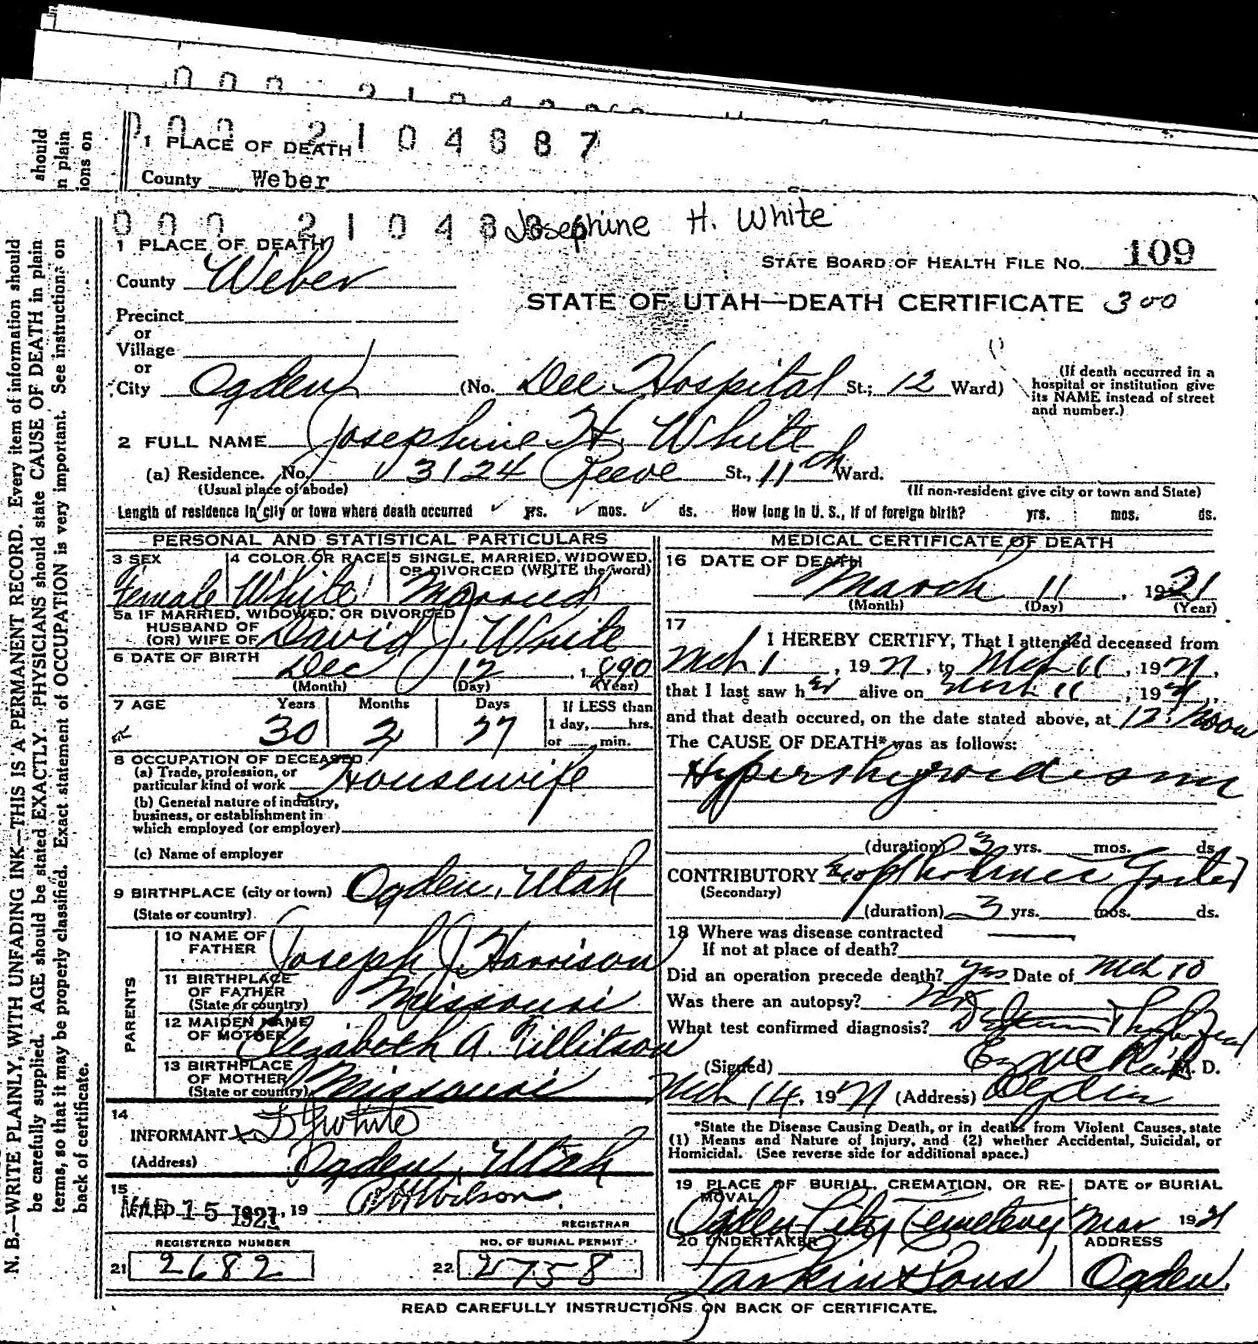 0 0 0 2 1 0 4 8 8 7
1 PLACE OF DEATH
County Weber
should
n plain
ions on
N. B.—WRITE PLAINLY, WITH UNFADING INK—THIS IS A PERMANENT RECORD. Every item of information should
be carefully supplied. AGE should be stated EXACTLY. PHYSICIANS should state CAUSE OF DEATH in plain
terms, so that it may be properly classified. Exact statement of OCCUPATION is very important. See instructions on
back of certificate.
0 0 0 2 1 0 4 8 Josephine H. White
1 PLACE OF DEATH
County Weber
STATE BOARD OF HEALTH FILE NO. 109
STATE OF UTAH—DEATH CERTIFICATE 300
Precinct
or
Village
or
City Ogden (No. Dee Hospital St.; 12 Ward)
(If death occurred in a
hospital or institution give
its NAME instead of street
and number.)
2 FULL NAME Josephine H. White
(a) Residence. No. 3124 Reeve St., 11th Ward.
(Usual place of abode) (If non-resident give city or town and State)
Length of residence in city or town where death occurred yrs. mos. ds. How long in U. S., if of foreign birth? yrs. mos. ds.
PERSONAL AND STATISTICAL PARTICULARS
3 SEX Female
4 COLOR OR RACE White
5 SINGLE, MARRIED, WIDOWED,
OR DIVORCED (WRITE the word) Married
5a IF MARRIED, WIDOWED, OR DIVORCED
HUSBAND OF
(OR) WIFE OF David J. White
6 DATE OF BIRTH Dec 12, 1890
(Month) (Day) (Year)
7 AGE Years Months Days If LESS than
30 2 27 1 day, hrs.
or min.
8 OCCUPATION OF DECEASED
(a) Trade, profession, or
particular kind of work Housewife
(b) General nature of industry,
business, or establishment in
which employed (or employer)
(c) Name of employer
9 BIRTHPLACE (city or town) Ogden, Utah
(State or country)
PARENTS
10 NAME OF
FATHER Joseph J. Harrison
11 BIRTHPLACE
OF FATHER
(State or country) Missouri
12 MAIDEN NAME
OF MOTHER Elizabeth A. Tillitson
13 BIRTHPLACE
OF MOTHER
(State or country) Missouri
14
INFORMANT x D J White
(Address) Ogden, Utah
15
FILED MAR 15 1921, 19 Wilson
REGISTRAR
REGISTERED NUMBER NO. OF BURIAL PERMIT
21 2682 22 2758
MEDICAL CERTIFICATE OF DEATH
16 DATE OF DEATH
March 11, 1921
(Month) (Day) (Year)
17
I HEREBY CERTIFY, That I attended deceased from
Mch 1, 1921, to Mch 11, 1921,
that I last saw her alive on Mch 11, 1921,
and that death occured, on the date stated above, at 12 Noon
The CAUSE OF DEATH* was as follows:
Hyperthyroidism
(duration) 3 yrs. mos. ds.
CONTRIBUTORY Exophthalmic Goiter
(Secondary)
(duration) 3 yrs. mos. ds.
18 Where was disease contracted
If not at place of death?
Did an operation precede death? Yes Date of Mch 10
Was there an autopsy? No
What test confirmed diagnosis?
(Signed) M. D.
Mch 14, 1921 (Address) Ogden
*State the Disease Causing Death, or in deaths from Violent Causes, state
(1) Means and Nature of Injury, and (2) whether Accidental, Suicidal, or
Homicidal. (See reverse side for additional space.)
19 PLACE OF BURIAL, CREMATION, OR RE- DATE OF BURIAL
MOVAL
Ogden City Cemetery Mar 1921
20 UNDERTAKER ADDRESS
Larkin & Sons Ogden.
READ CAREFULLY INSTRUCTIONS ON BACK OF CERTIFICATE.